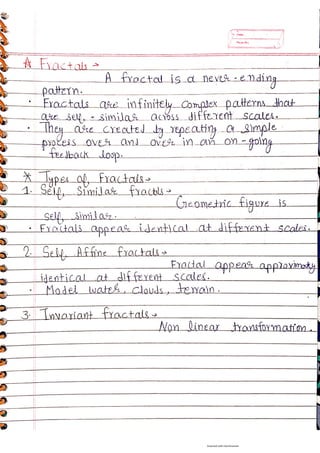 * Fractals →
A fractal is a never-ending
pattern.
• Fractals are infinitely complex patterns that
are self-similar across different scales.
• They are created by repeating a simple
process over and over in an on-going
feedback loop.
* Types of Fractals →
1. Self, Similar fractals →
Geometric figure is
self, similar.
• Fractals appear identical at different scales.
2. Self Affine fractals →
Fractal appear approximatly
identical at different scales.
• Model water, clouds, terrain.
3. Invariant fractals →
Non linear transformation.